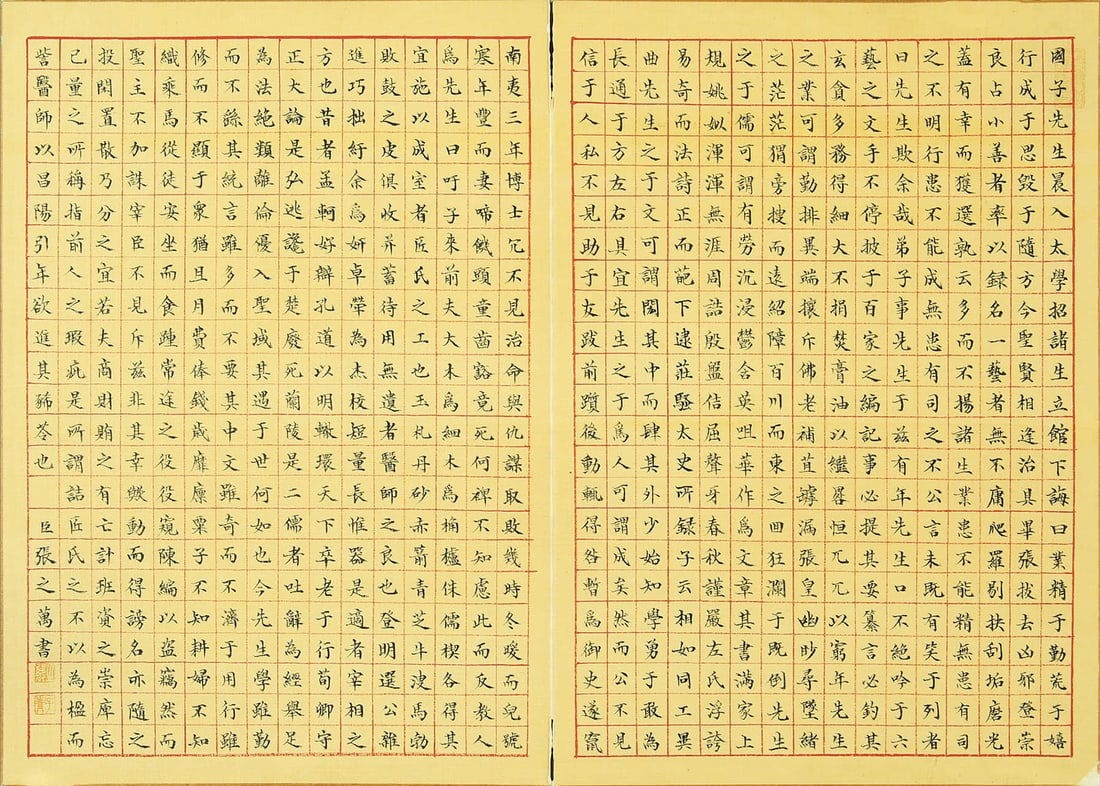 國子先生晨入太學招諸生立館下誨曰業精于勤荒于嬉
行成于思毀于隨方今聖賢相逢治具畢張拔去凶邪登崇
良占小善者率以録名一藝者無不庸爬羅剔抉刮垢磨光
蓋有幸而獲選孰云多而不揚諸生業患不能精無患有司
之不明行患不能成無患有司之不公言未既有笑于列者
曰先生欺余哉弟子事先生于茲有年先生口不絕吟于六
藝之文手不停披于百家之編記事必提其要纂言必鈎其
玄貪多務得細大不捐焚膏油以繼晷恒兀兀以窮年先生
之業可謂勤排異端攘斥佛老補苴罅漏張皇幽眇尋墜緒
之茫茫獨旁搜而遠紹障百川而東之囬狂瀾于既倒先生
之于儒可謂有勞沉浸鬱含英咀華作爲文章其書滿家上
規姚姒渾渾無涯周誥殷盤佶屈聱牙春秋謹嚴左氏浮誇
易奇而法詩正而葩下逮莊騷太史所録子云相如同工異
曲先生之于文可謂閎其中而肆其外少始知學勇于敢為
長通于方左右具宜先生之于爲人可謂成矣然而公不見
信于人私不見助于友跋前躓後動輒得咎暫爲御史遂竄
南夷三年博士冗不見治命與仇謀取敗幾時冬暖而兒號
寒年豐而妻啼飢頭童齒豁竟死何裨不知慮此而反教人
爲先生曰吁子來前夫大木爲細木爲桷櫨侏儒楔各得其
宜施以成室者匠氏之工也玉札丹砂赤箭青芝牛溲馬勃
敗鼓之皮俱收并蓄待用無遺者醫師之良也登明選公雜
進巧拙紆余爲妍卓犖為杰校短量長惟器是適者宰相之
方也昔者孟軻好辯孔道以明轍環天下卒老于行荀卿守
正大論是弘逃讒于楚廢死蘭陵是二儒者吐辭為經舉足
為法絕類離倫優入聖域其遇于世何如也今先生學雖勤
而不繇其統言雖多而不要其中文雖奇而不濟于用行雖
修而不顯于衆猶且月費俸錢歲靡廩粟子不知耕婦不知
織乘馬從徒安坐而食踵常途之役役窺陳編以盜竊然而
聖主不加誅宰臣不見斥茲非其幸歟動而得謗名亦隨之
投閑置散乃分之宜若夫商財賄之有亡計班資之崇庳忘
己量之所稱指前人之瑕疵是所謂詰匠氏之不以為楹而
訾醫師以昌陽引年欲進其豨苓也 臣張之萬書